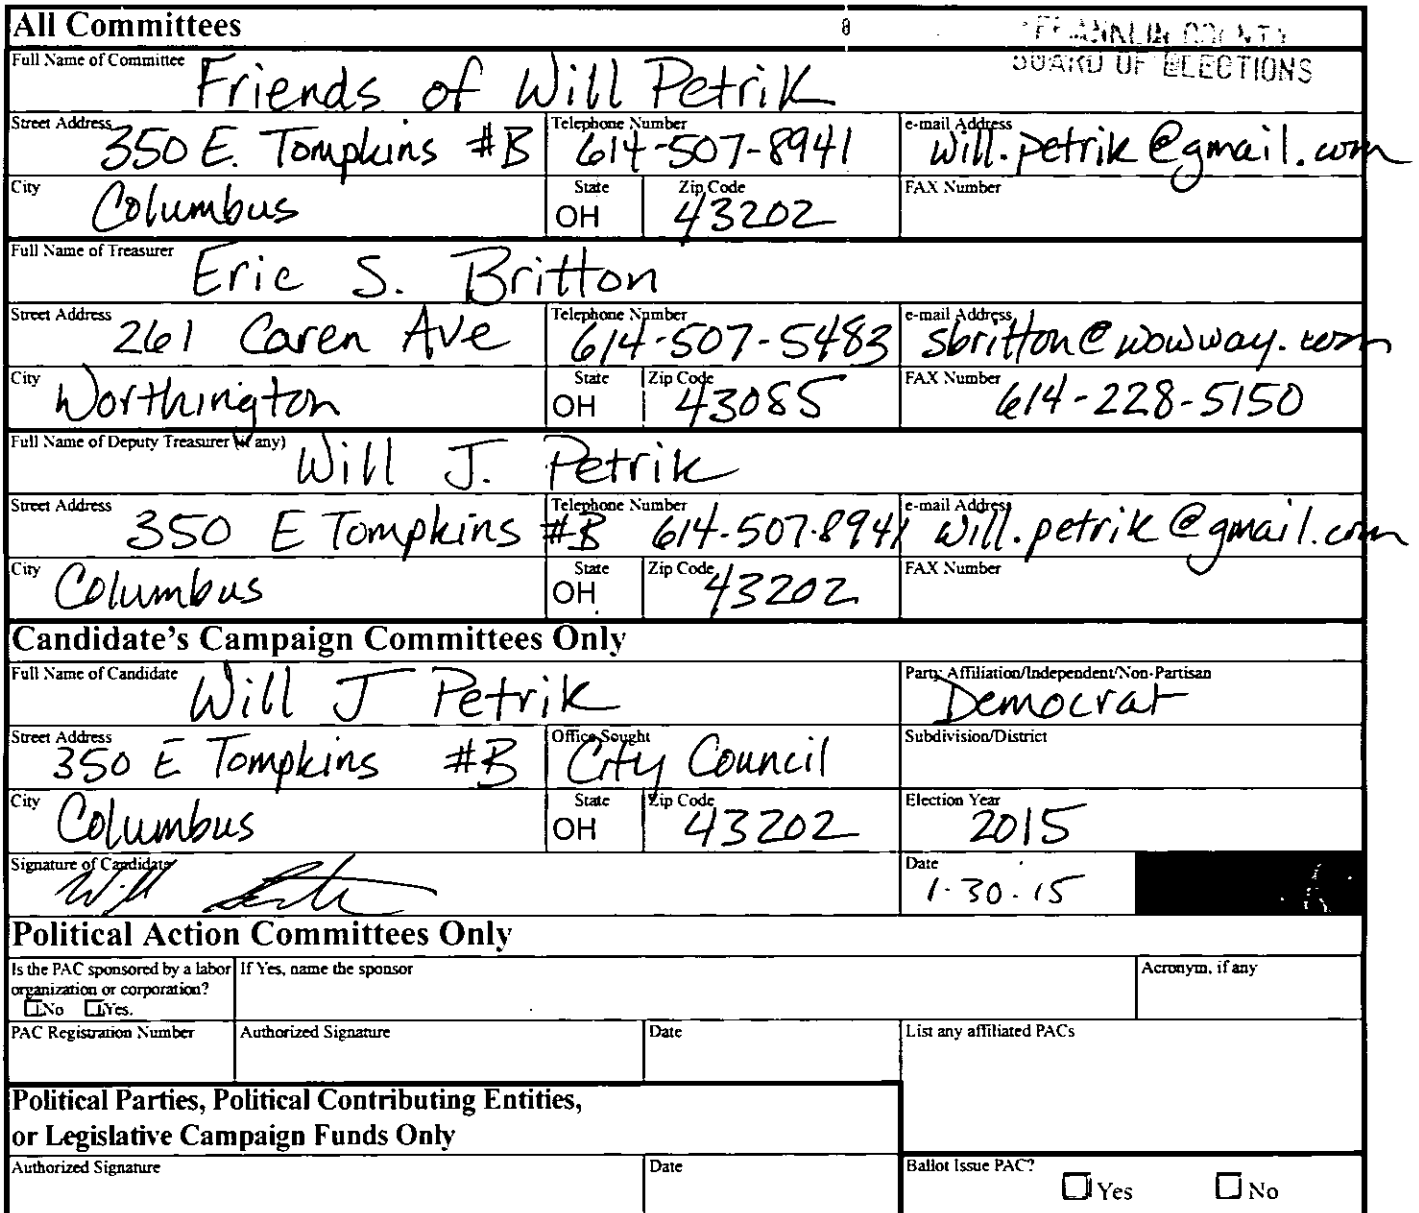 All Committees
FRANKLIN COUNTY
BOARD OF ELECTIONS
Full Name of Committee Friends of Will Petrik
Street Address 350 E. Tompkins #B Telephone Number 614-507-8941 e-mail Address will.petrik@gmail.com
City Columbus State OH Zip Code 43202 FAX Number
Full Name of Treasurer Eric S. Britton
Street Address 261 Caren Ave Telephone Number 614-507-5483 e-mail Address sbritton@wowway.com
City Worthington State OH Zip Code 43085 FAX Number 614-228-5150
Full Name of Deputy Treasurer (if any) Will J. Petrik
Street Address 350 E Tompkins #B Telephone Number 614-507-8941 e-mail Address will.petrik@gmail.com
City Columbus State OH Zip Code 43202 FAX Number
Candidate's Campaign Committees Only
Full Name of Candidate Will J Petrik Party Affiliation/Independent/Non-Partisan Democrat
Street Address 350 E Tompkins #B Office Sought City Council Subdivision/District
City Columbus State OH Zip Code 43202 Election Year 2015
Signature of Candidate Will Date 1-30-15
Political Action Committees Only
Is the PAC sponsored by a labor If Yes, name the sponsor Acronym, if any
organization or corporation?
No Yes.
PAC Registration Number Authorized Signature Date List any affiliated PACs
Political Parties, Political Contributing Entities,
or Legislative Campaign Funds Only
Authorized Signature Date Ballot Issue PAC?
Yes No